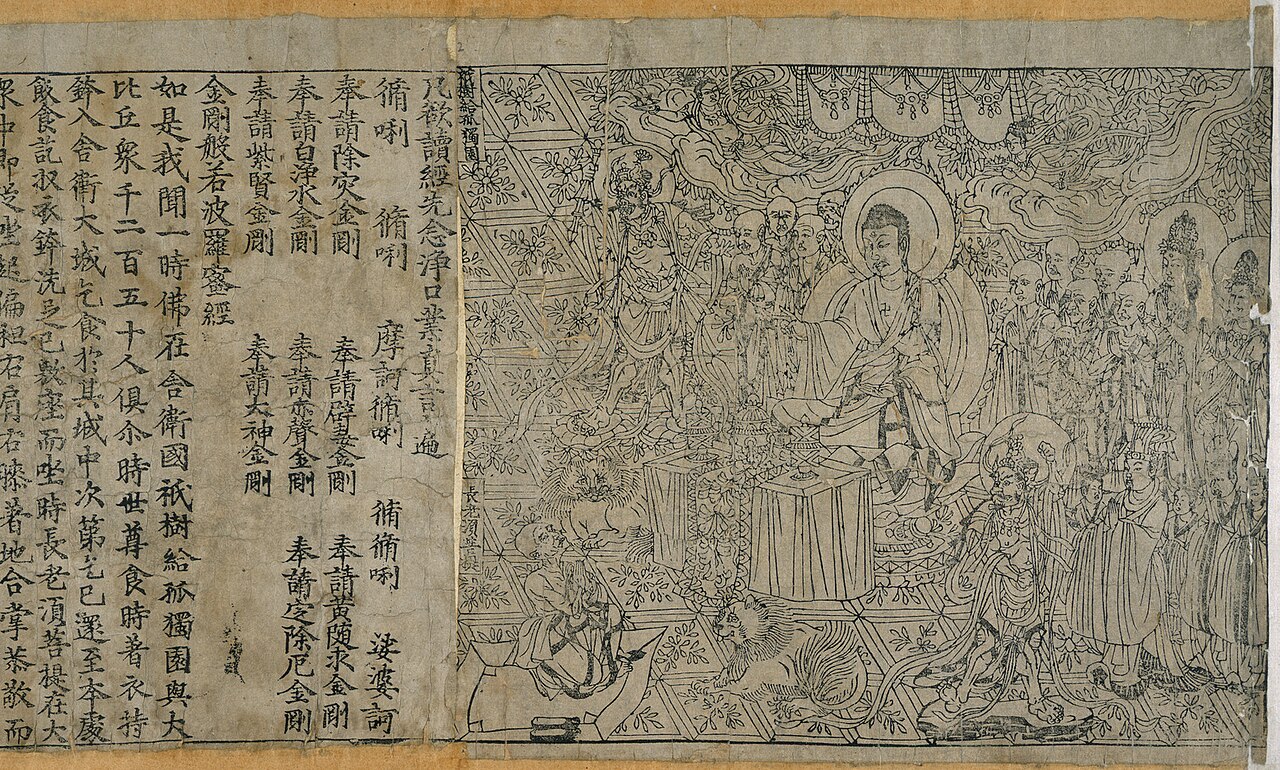 祇樹給孤獨園
長老須菩提
凡欲讀經先念淨口業真言一遍
脩唎 脩唎 摩訶脩唎 脩脩唎 娑婆訶
奉請除灾金剛 奉請辟毒金剛 奉請黄随求金剛
奉請白淨水金剛 奉請赤聲金剛 奉請定除厄金剛
奉請紫賢金剛 奉請大神金剛
金剛般若波羅蜜經
如是我聞一時佛在舍衛國祇樹給孤獨園與大
比丘衆千二百五十人俱尒時世尊食時著衣持
鉢入舍衛大城乞食於其城中次第乞已還至本處
飯食訖収衣鉢洗足已敷座而坐時長老湏菩提在大
衆中即従座起偏袒右肩右膝著地合掌恭敬而